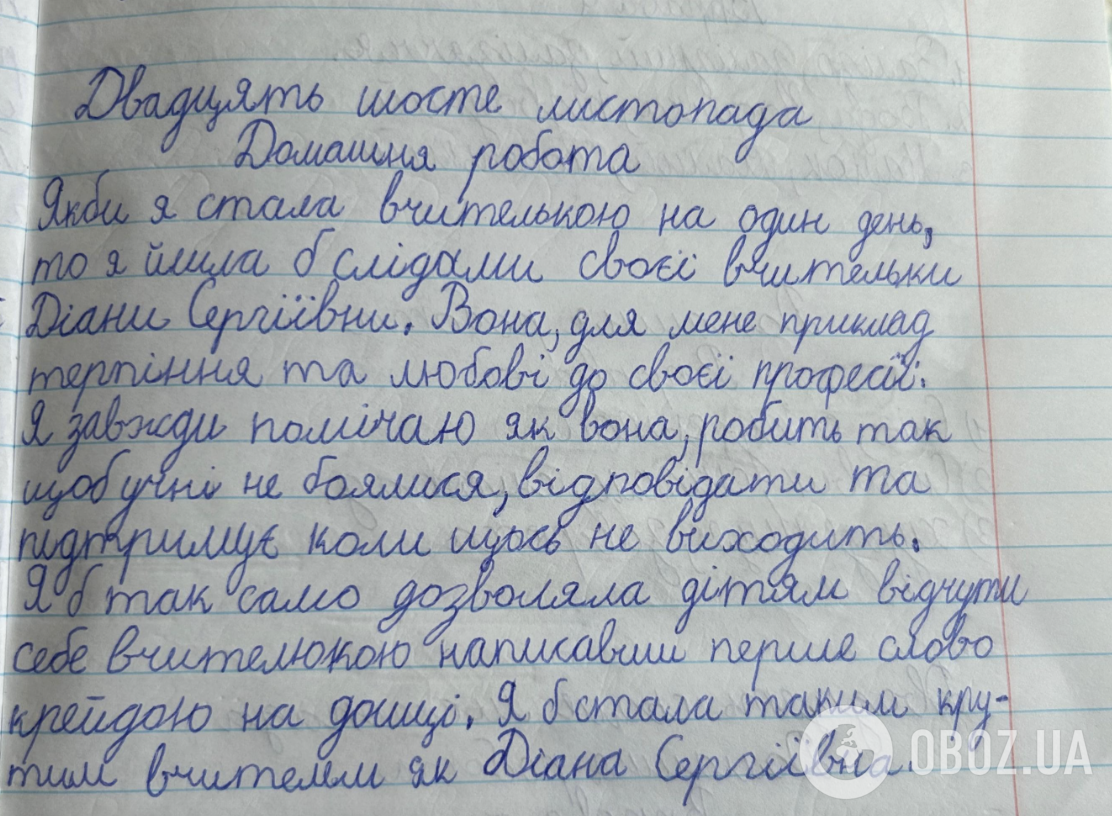 Двадцять шосте листопада
Домашня робота
Якби я стала вчителькою на один день,
то я йшла б слідами своєї вчительки
Діани Сергіївни. Вона, для мене приклад
терпіння та любові до своєї професії.
Я завжди помічаю як вона, робить так
щоб учні не боялися, відповідати та
підтримує коли щось не виходить.
Я б так само дозволяла дітям відчути
себе вчителюкою написавши перше слово
крейдою на дошці. Я б стала таким кру-
тим вчителем як Діана Сергіївна.
OBOZ.UA